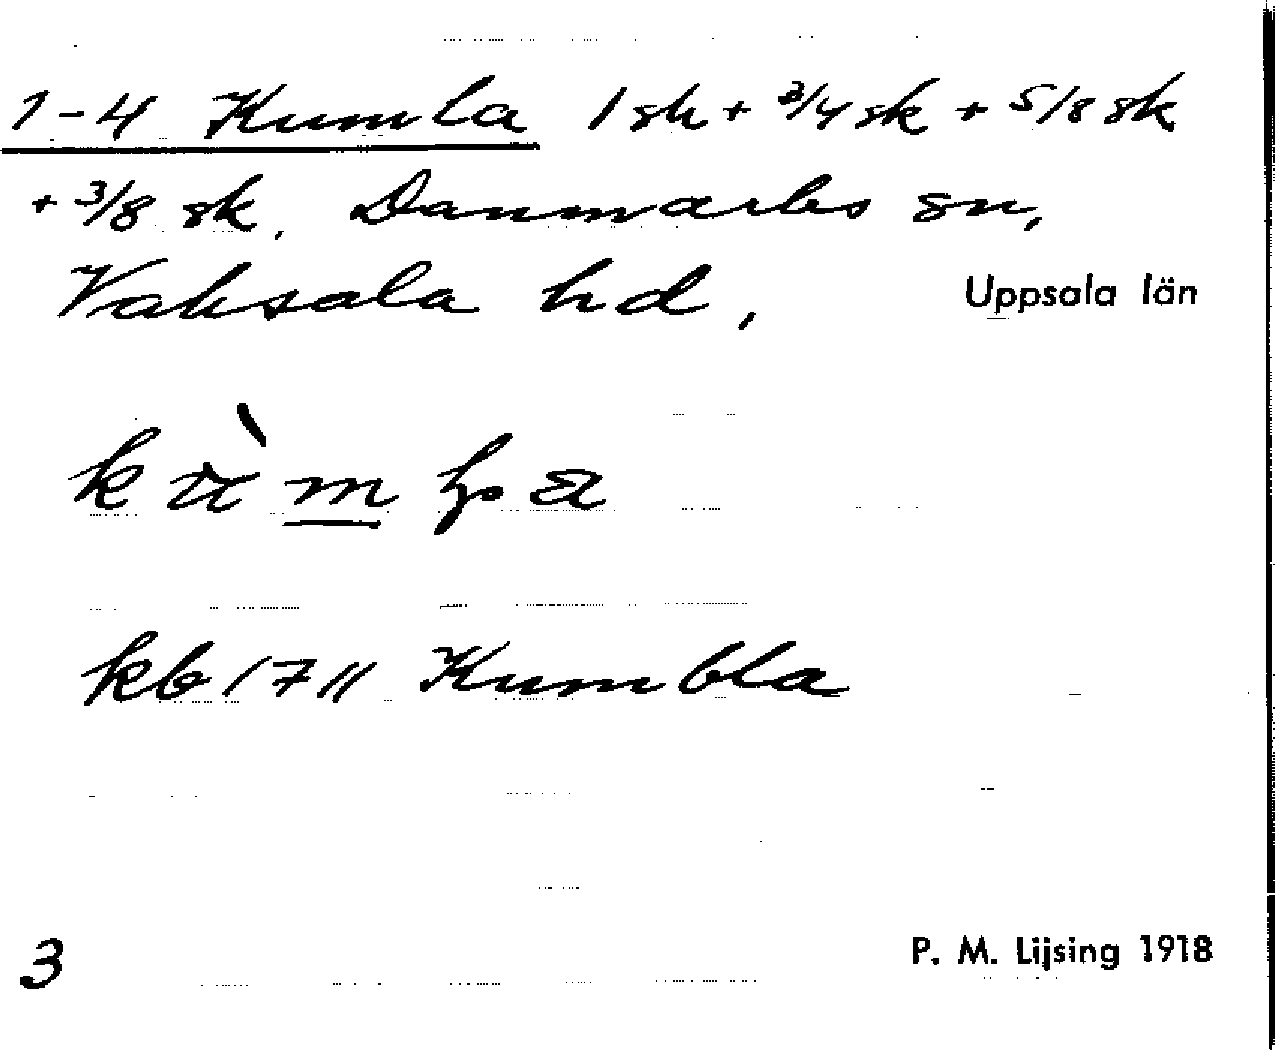 1-4 Kumla 1 sk + 3/4 sk + 5/8 sk
+ 3/8 sk, Danmarks sn,
Vaksala hd,
Uppsala län
kb 1711 Kumbla
3
P. M. Lijsing 1918